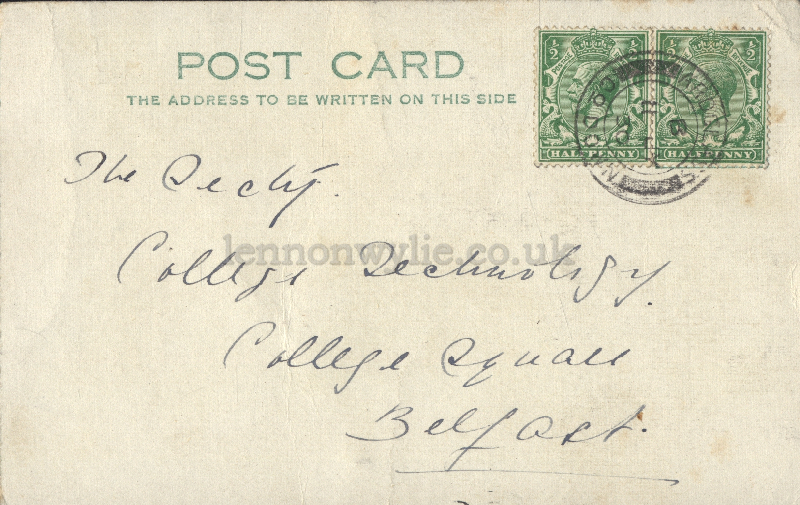 POST CARD
THE ADDRESS TO BE WRITTEN ON THIS SIDE
½ ½ ½ ½
HALFPENNY HALFPENNY
The Secty.
College Technology
College Square
Belfast.
lennonwylie.co.uk